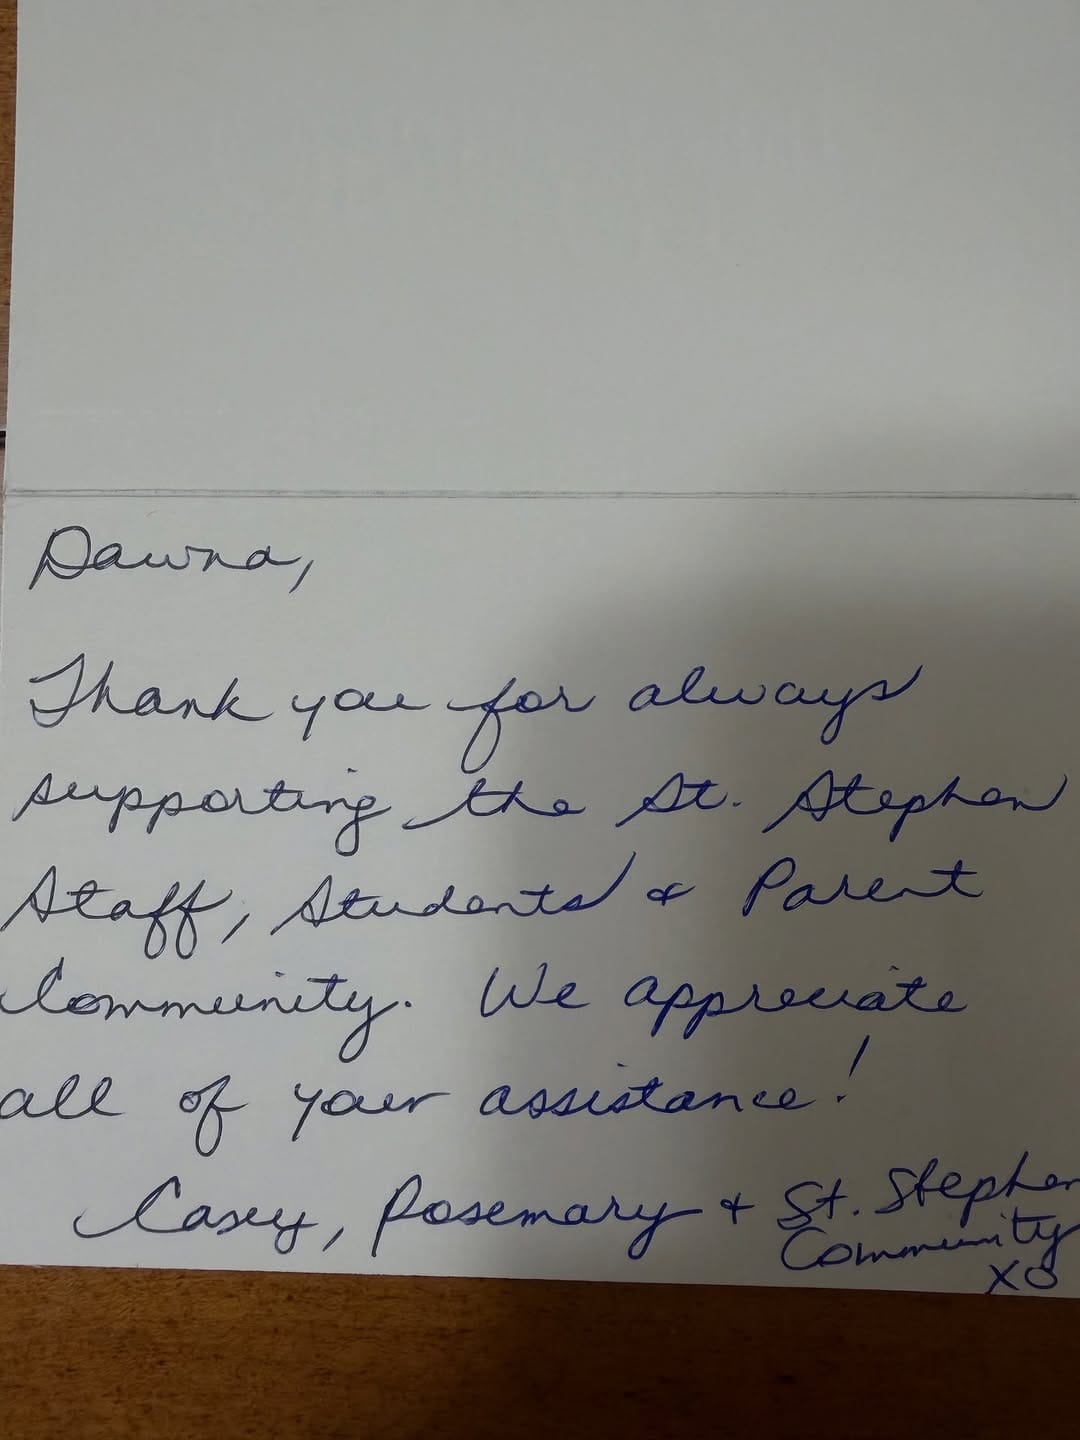 Dawna,
Thank you for always
supporting the St. Stephen
Staff, Students & Parent
Community. We appreciate
all of your assistance!
Casey, Rosemary & St. Stephen
Community
XO